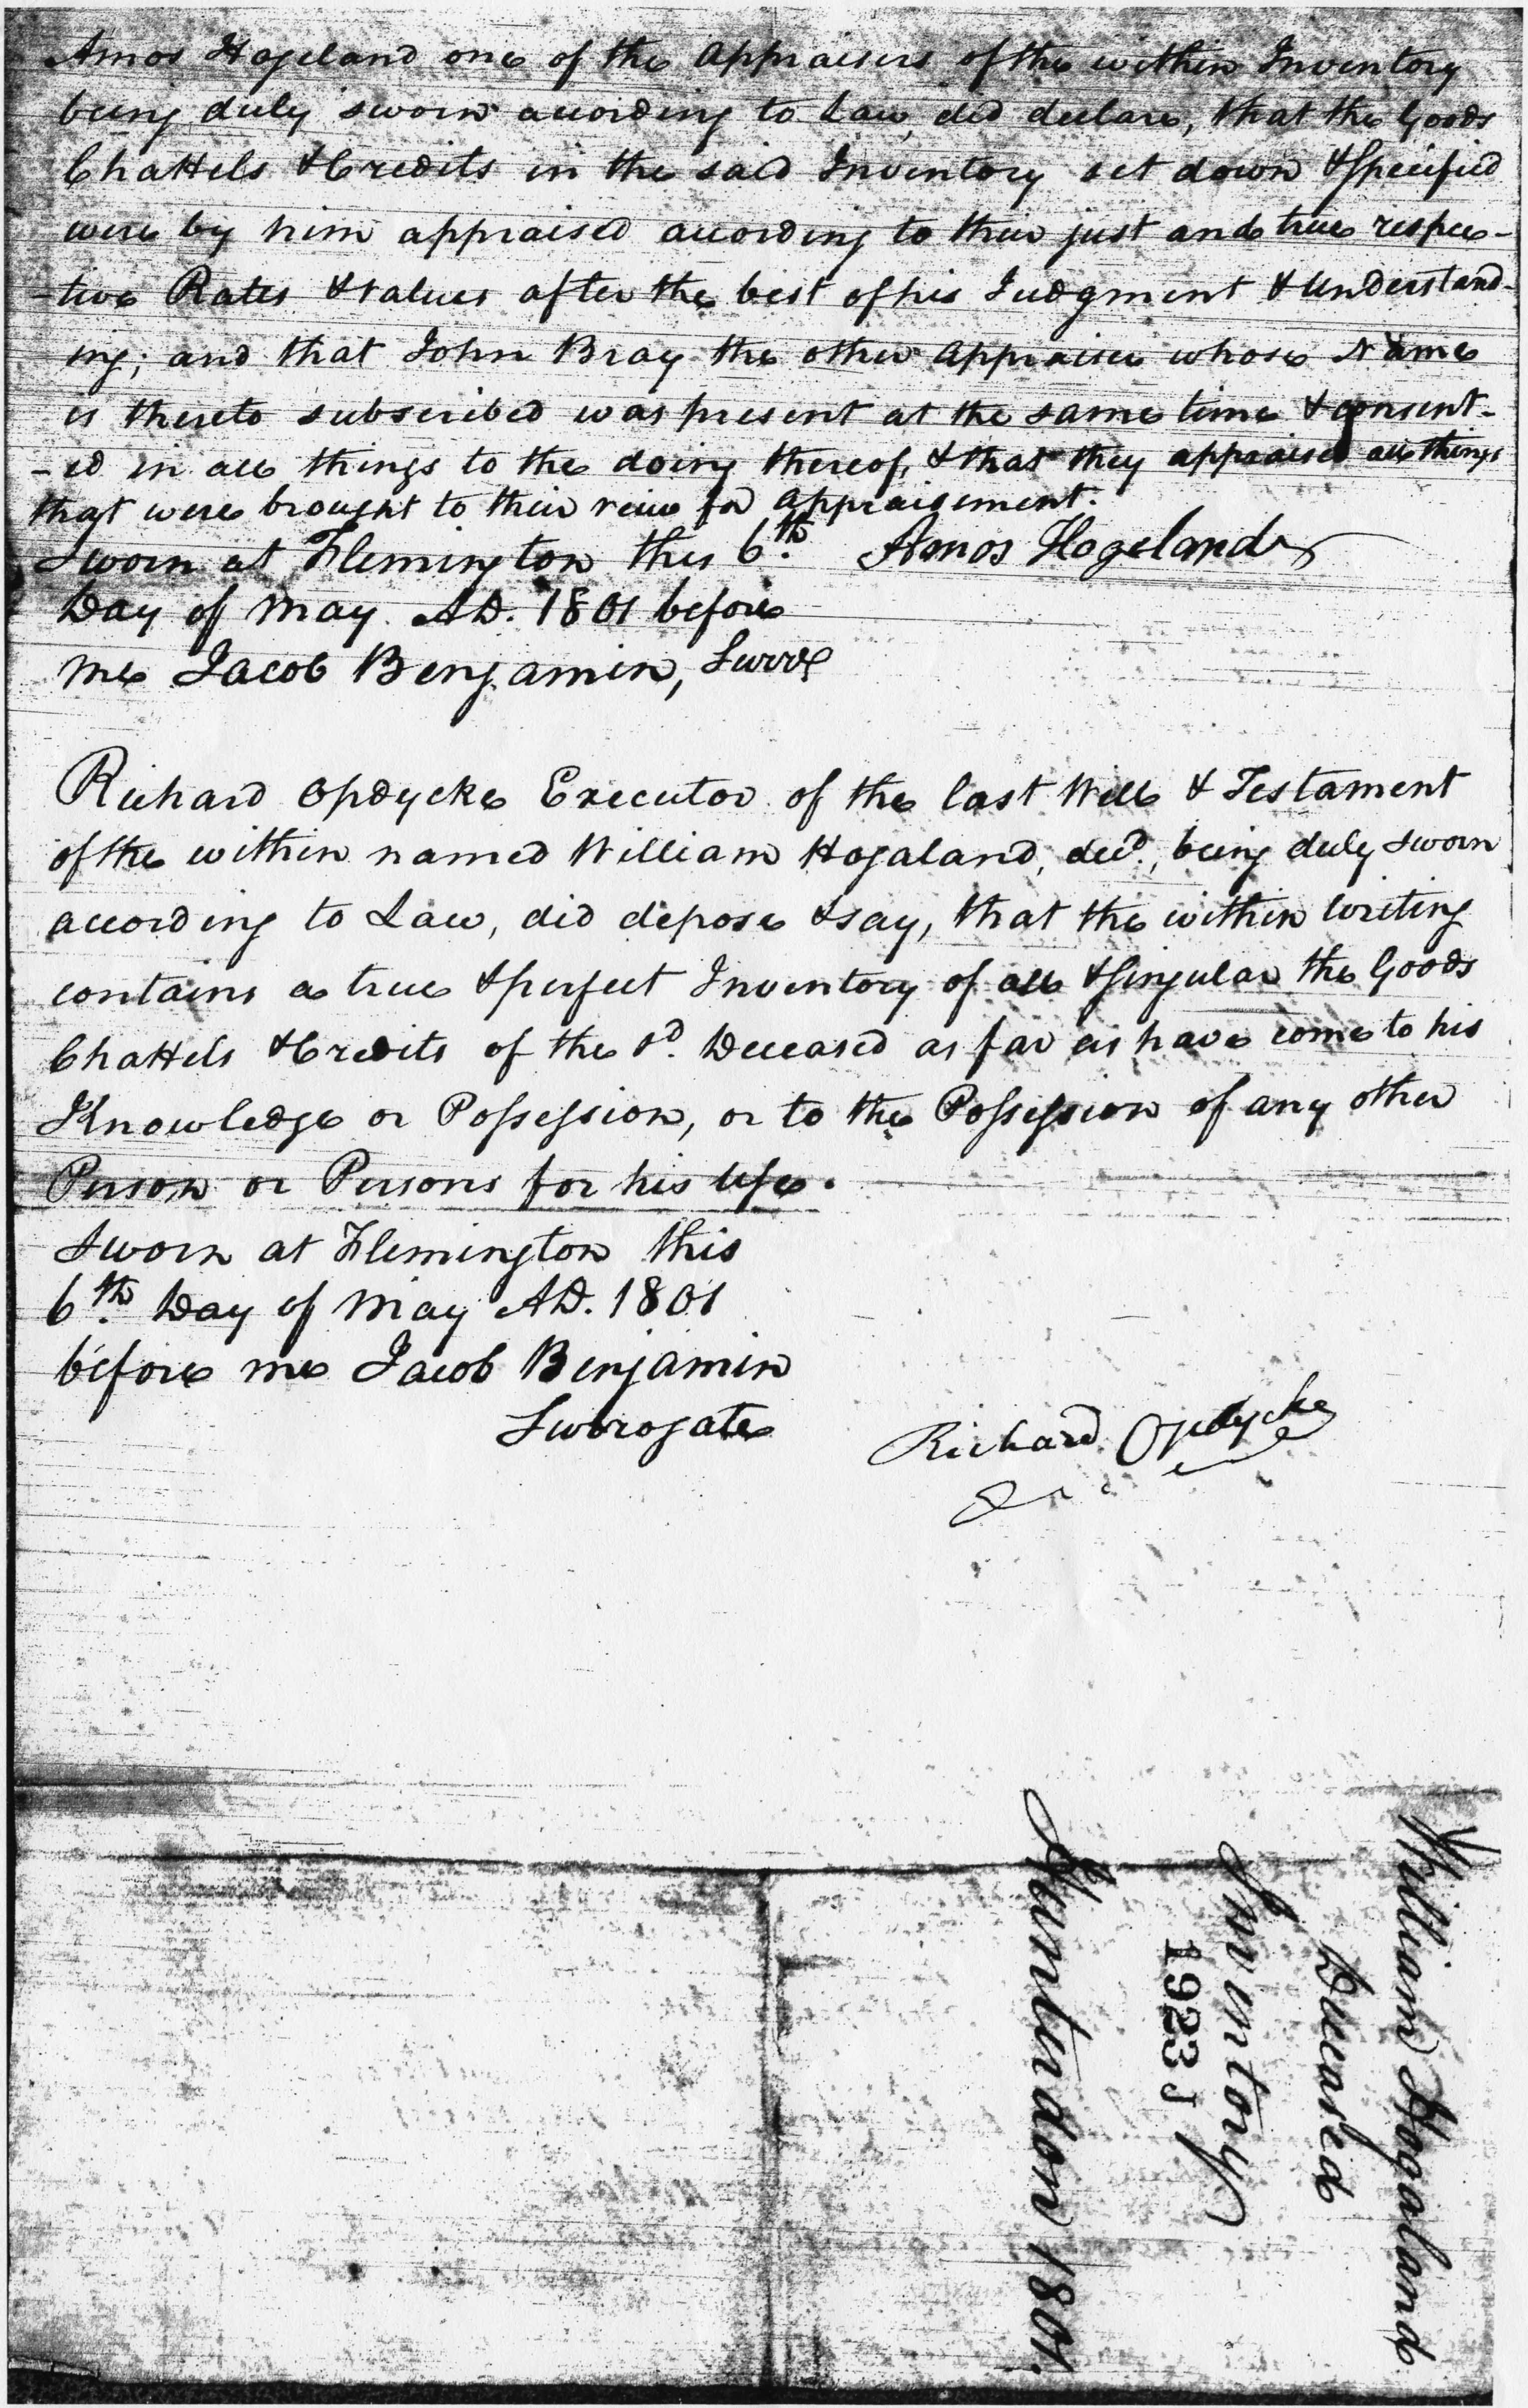 Amos Hogeland one of the Appraisers of the within Inventory
being duly sworn according to Law did declare, that the Goods
Chattels & Credits in the said Inventory set down & specified
were by him appraised according to their just and true respec-
-tive Rates & Values after the best of his Judgment & Understand-
ing; and that John Bray the other Appraiser whose Name
is thereto subscribed was present at the same time & consent-
-ed in all things to the doing thereof, & that they appraised all things
that were brought to their view for Appraisement.
Sworn at Flemington this 6th. Amos Hogeland
Day of May AD. 1801 before
me Jacob Benjamin, Surre
Richard Opdycke Executor of the last Will & Testament
of the within named William Hogaland, decd., being duly sworn
according to Law, did depose & say, that the within writing
contains a true & perfect Inventory of all & singular the Goods
Chattels & Credits of the sd. Deceased as far as have come to his
Knowledge or Possession, or to the Possession of any other
Person or Persons for his use.
Sworn at Flemington this
6th. Day of May AD. 1801
before me Jacob Benjamin
Surrogate
Richard Opdycke
William Hogaland
Deceased
Inventory
1923 J
Hunterdon 1801.